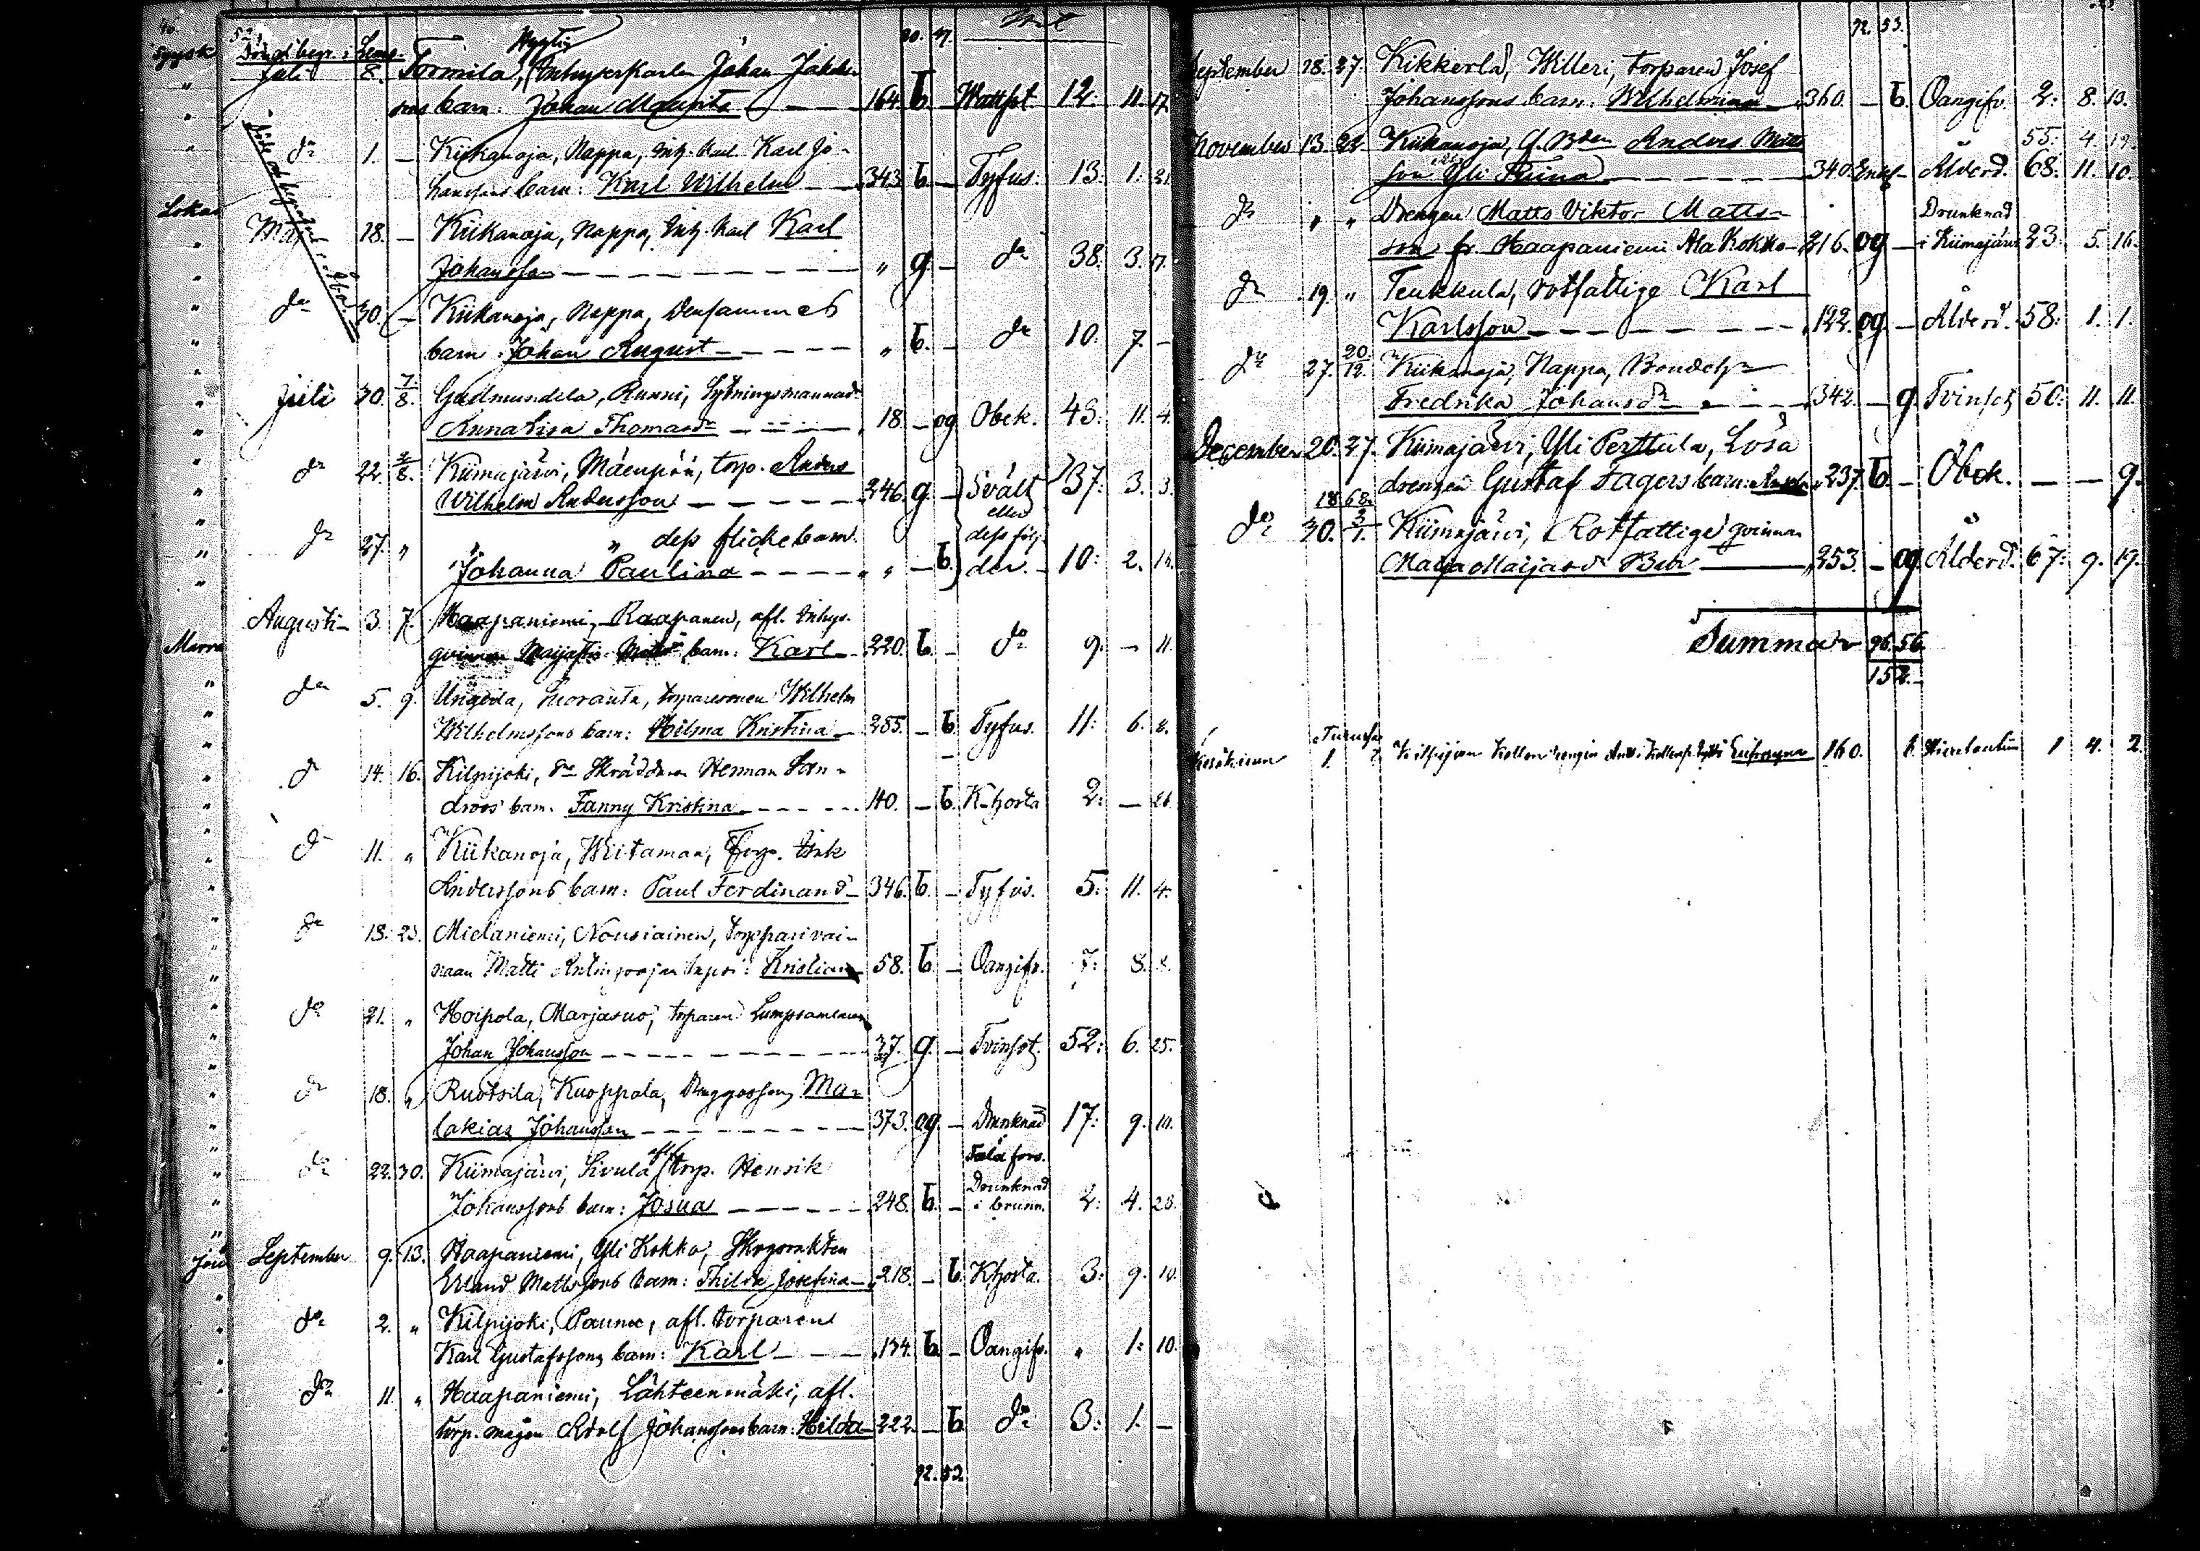 Juli 8. Tormila, Inhyseskarlen Johan Jakobs-
sons barn: Johan Mauritz — 164. b. — Wattsot 12: 11. 17.
do 1. — Kiukanoja, Nappa, Inh. karl Karl Jo-
hanssons barn: Karl Wilhelm — 343. b. — Tyfus. 13: 1. 21.
Maj 18. — Kiukanoja, Nappa, Inh. karl Karl
Johansson — „ g. — do 38: 3. 17.
do 30. — Kiukanoja, Nappa, Densammes
barn: Johan August — „ b. — do 10: 7. —
Juli 30. 7/8. Gudmundila, Runni, Sytningsmannad:
Anna Lisa Thomasdr — 18. — og Obek. 43: 11. 4.
do 22. Kiimajärvi, Mäenpää, torp. Anders
Wilhelm Andersson — 246. g. — Svält 37: 3. 3.
eller
do 27. „ „ dess flickebarn dess följ-
Johanna Paulina — „ „ — b. der. — 10: 2. 
Augusti 3. 7. Haapaniemi, Raapanen, afl. Inhys.
qvinnan barn: Karl — 220. b. — do 9. — 11.
do 5. 9. Uhgola, Wilhelm
Wilhelmssons barn: Hilma Kristina — 285. — b. Tyfus. 11: 6. 8.
do 14. 16. Kilpijoki, Skräddaren Herman San-
droos barn. Fanny Kristina — 40. — b. K-hosta 2: — 26.
do 11. „ Kiukanoja, Wiitaman, Torp. Isak
Anderssons barn: Paul Ferdinand — 346. b. — Tyfus. 5: 11. 4.
do 18. 23. Mielaniemi, Nousiainen, torppari vai-
naan Matti Antinpojan lapsi: Kristian 58. b. — Oangifv. 7: 8. 8.
do 21. „ Hoipola, Marjasuo, torparen Lumpsamlaren
Johan Johansson — 37. g. — Tvinsot. 52: 6. 25.
do 18. „ Ruotsila, Kuoppala, Ma-
lakias Johansson — 373. og. — Drunknad 17: 9. 
do 22. 30. Kiimajärvi, Sivula torp. Henrik Drunknad
Johanssons barn: Josua — 248. b. — i brunn. 2: 4. 23.
September 9. 13. Haapaniemi, Yli Kokko, Skogvakten
Erland Mattssons barn: Thilda Josefina — 218. — b. K-hosta. 3: 9. 
do 2. „ Kilpijoki, Paunu, afl. torparen
Karl Gustafssons barn: Karl — 134. b. — Oangifv. „ 1: 10.
do 11. „ Haapaniemi, Lähteenmäki, afl.
torp. mågen Adolf Johanssons barn: Hilda — 222. — b. do 3: 1. —
92. 52.
92. 53.
September 18. 27. Kikkerla, Willeri, torparen Josef
Johanssons barn: Wilhelmina — 360. — b. Oangifv. 2: 8. 13.
November 13. 24. Kiukanoja, Anders Matts-
55. 4. 19.
son — 340. Enkl. — Ålderd. 68: 11. 10.
do „ „ Drengen Matts Viktor Matts- Drunknad
son fr. Haapaniemi Ala Kokko — 216. og — i Kiimajärvi 23: 5. 16.
do 19. „ Teukkula, rotfattige Karl
Karlsson — 122. og. — Ålderd. 58: 1. 1.
do 27. 20/12. Kiukanoja, Nappa, Bondeh:
Fredrika Johansdr — 342. — g. Tvinsot 50: 11. 11.
December 20. 27. Kiimajärvi, Yli Perttula, Lösa
drengen Gustaf Fagers barn: 237. b. — Obek. — — 9.
1868.
do 30. 3/1. Kiimajärvi, Rotfattige qvinnan
— 253. — og. Ålderd. 67: 9. 19.
Summa 96. 56.
152.
160. 1 4. 2.